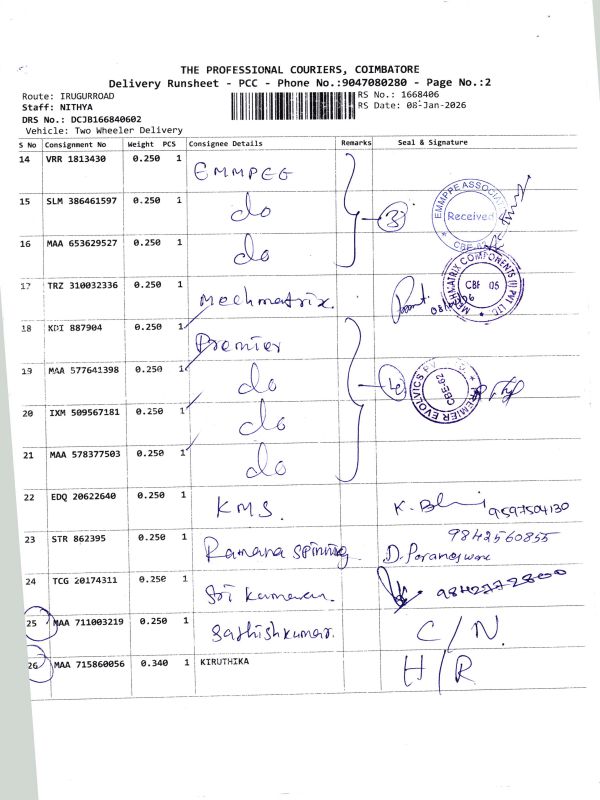 THE PROFESSIONAL COURIERS, COIMBATORE
Delivery Runsheet - PCC - Phone No.:9047080280 - Page No.:2
Route: IRUGURROAD
RS No.: 1668406
Staff: NITHYA
RS Date: 08-Jan-2026
DRS No.: DCJB166840602
Vehicle: Two Wheeler Delivery
S No Consignment No Weight PCS Consignee Details Remarks Seal & Signature
14 VRR 1813430 0.250 1 EMMPEG
15 SLM 386461597 0.250 1 do 3 EMMPPE ASSOCIAT Received CBE-62
16 MAA 653629527 0.250 1 do
17 TRZ 310032336 0.250 1 Mechmatrix. MECHMATRIX COMPONENTS (I) PVT LTD CBE 05
18 KDI 887904 0.250 1 Premier
19 MAA 577641398 0.250 1 do 4 PREMIER EVOLVICS CBE-62
20 IXM 509567181 0.250 1 do
21 MAA 578377503 0.250 1 do
22 EDQ 20622640 0.250 1 KMS. 9597504130
23 STR 862395 0.250 1 Ramana Spinning 9842560855
24 TCG 20174311 0.250 1 Sri Kumaran. 9842272800
25 MAA 711003219 0.250 1 Sathishkumar. C/N.
26 MAA 715860056 0.340 1 KIRUTHIKA H/R